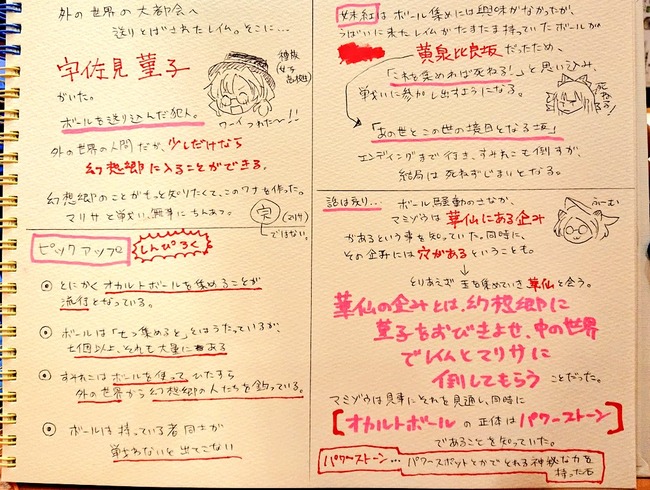 外の世界の大都会へ
送りとばされたレイム。そこに…
宇佐見菫子
がいた。
神族
(女子高校生)
ワーイつれた〜!!
ボールを送り込んだ犯人。
外の世界の人間だが、少しだけなら
幻想郷に入ることができる。
幻想郷のことがもっと知りたくて、このワナを作った。
マリサと戦い、無事にちんあつ。
完
(マリサ)
ではない。
ピックアップ
しんぴろく
とにかくオカルトボールを集めることが
流行となっている。
ボールは「七つ集めると」とはうたっているが、
七個以上、それも大量にある
すみれこはボールを使って、ひたすら
外の世界から幻想郷の人たちを釣っている。
ボールは持っている者同士が
戦わないと出てこない
妹紅はボール集めには興味がなかったが、
うばいに来たレイムがたまたま持っていたボールが
黄泉比良坂だったため、
「これを集めれば死ねる!」と思い込み、
戦いに参加し出すようになる。
死ねる!
「あの世とこの世の境目となる坂」
エンディングまで行き、すみれこも倒すが、
結局は死ねずじまいとなる。
話は戻り…
ボール騒動のさなか、
マミゾウは華仙にある企み
があるという事を知っていた。同時に、
その企みには穴があるということも。
ふぃーむぅ
とりあえず玉を集めていき華仙と会う。
華仙の企みとは、幻想郷に
菫子をおびきよせ、中の世界
でレイムとマリサに
倒してもらうことだった。
マミゾウは見事にそれを見通し、同時に
[オカルトボールの正体はパワーストーン]
であることを知っていた。
パワーストーン…パワースポットとかでとれる神秘な力を
持った石